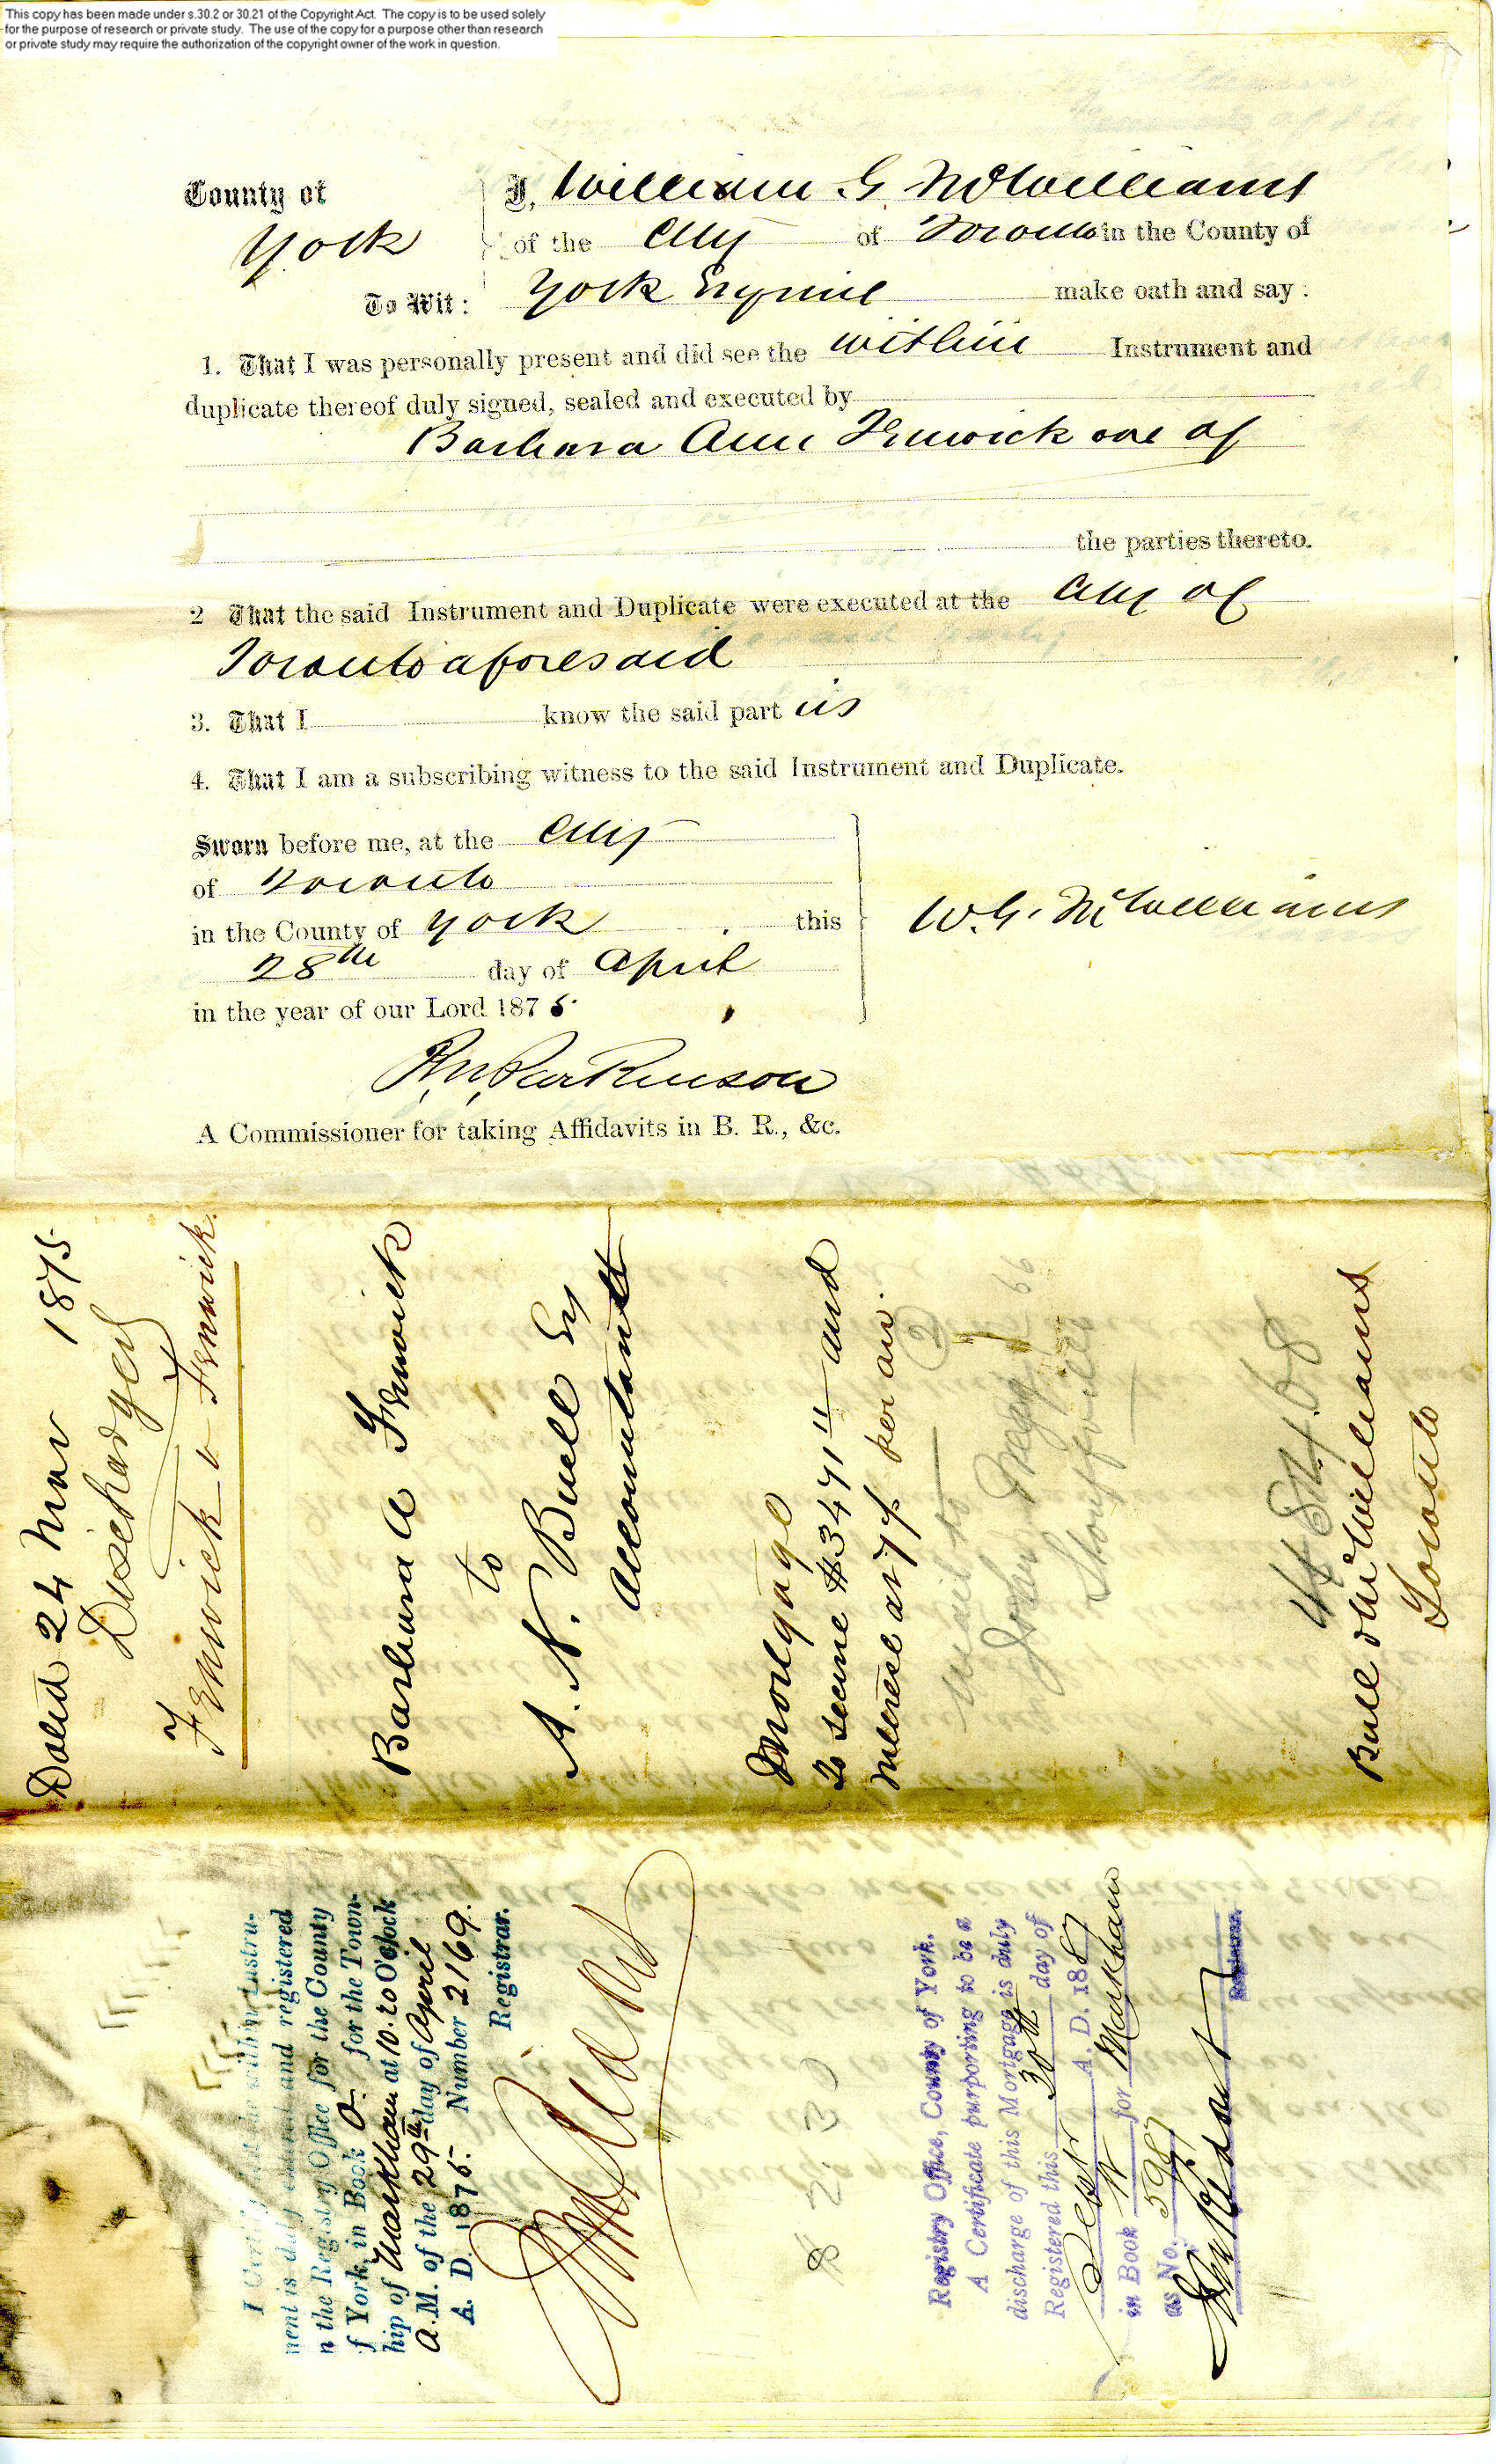 This copy has been made under s.30.2 or 30.21 of the Copyright Act. The copy is to be used solely
for the purpose of research or private study. The use of the copy for a purpose other than research
or private study may require the authorization of the copyright owner of the work in question.
County of
York
To Wit:
I, William G. McWilliams
of the City of Toronto in the County of
York Esquire make oath and say:
1. That I was personally present and did see the within Instrument and
duplicate thereof duly signed, sealed and executed by
Barbara Ann Fenwick one of
the parties thereto.
2 That the said Instrument and Duplicate were executed at the City of
Toronto aforesaid
3. That I know the said part ies
4. That I am a subscribing witness to the said Instrument and Duplicate.
Sworn before me, at the City
of Toronto
in the County of York this
28th day of April
in the year of our Lord 1875.
W.G. McWilliams
Parkinson
A Commissioner for taking Affidavits in B. R., &c.
Dated 24 Mar 1875
Discharged
Fenwick v Fenwick.
Barbara A Fenwick
to
A. N. Buell Esq
Accountant
Mortgage
To secure $3471 and
Interest at 7 per an.
mail to
Stouffville
Bull & McWilliams
Toronto
I Certify that the within Instru-
ment is duly entered and registered
n the Registry Office for the County
f York, in Book O for the Town-
hip of Markham at 10.20 O'clock
A.M. of the 29th day of April
A. D. 1875. Number 2169.
Registrar.
Registry Office, County of York.
A Certificate purporting to be a
discharge of this Mortgage is duly
Registered this 30th day of
Sept A. D. 1887
in Book for Markham
as No. 5287
Registrar.